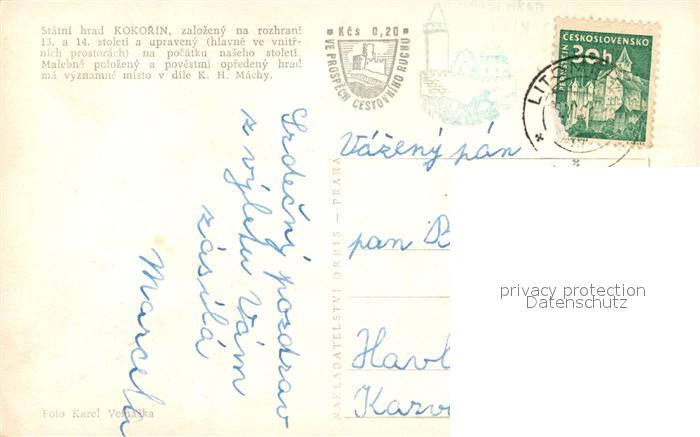 Státní hrad KOKOŘÍN, založený na rozhraní
13. a 14. století a upravený (hlavně ve vnitř-
ních prostorách) na počátku našeho století.
Malebně položený a pověstmi opředený hrad
má významné místo v díle K. H. Máchy.
Kčs 0,20
VE PROSPĚCH CESTOVNÍHO RUCHU
HRAD
ČESKOSLOVENSKO
30h
PERNŠTEJN
LIT
Srdečný pozdrav
z výletu Vám
zásílá
Marcela
Vážený pán
pan R
Havl
Karv
NAKLADATELSTVÍ ORBIS — PRAHA
Foto Karel
privacy protection
Datenschutz